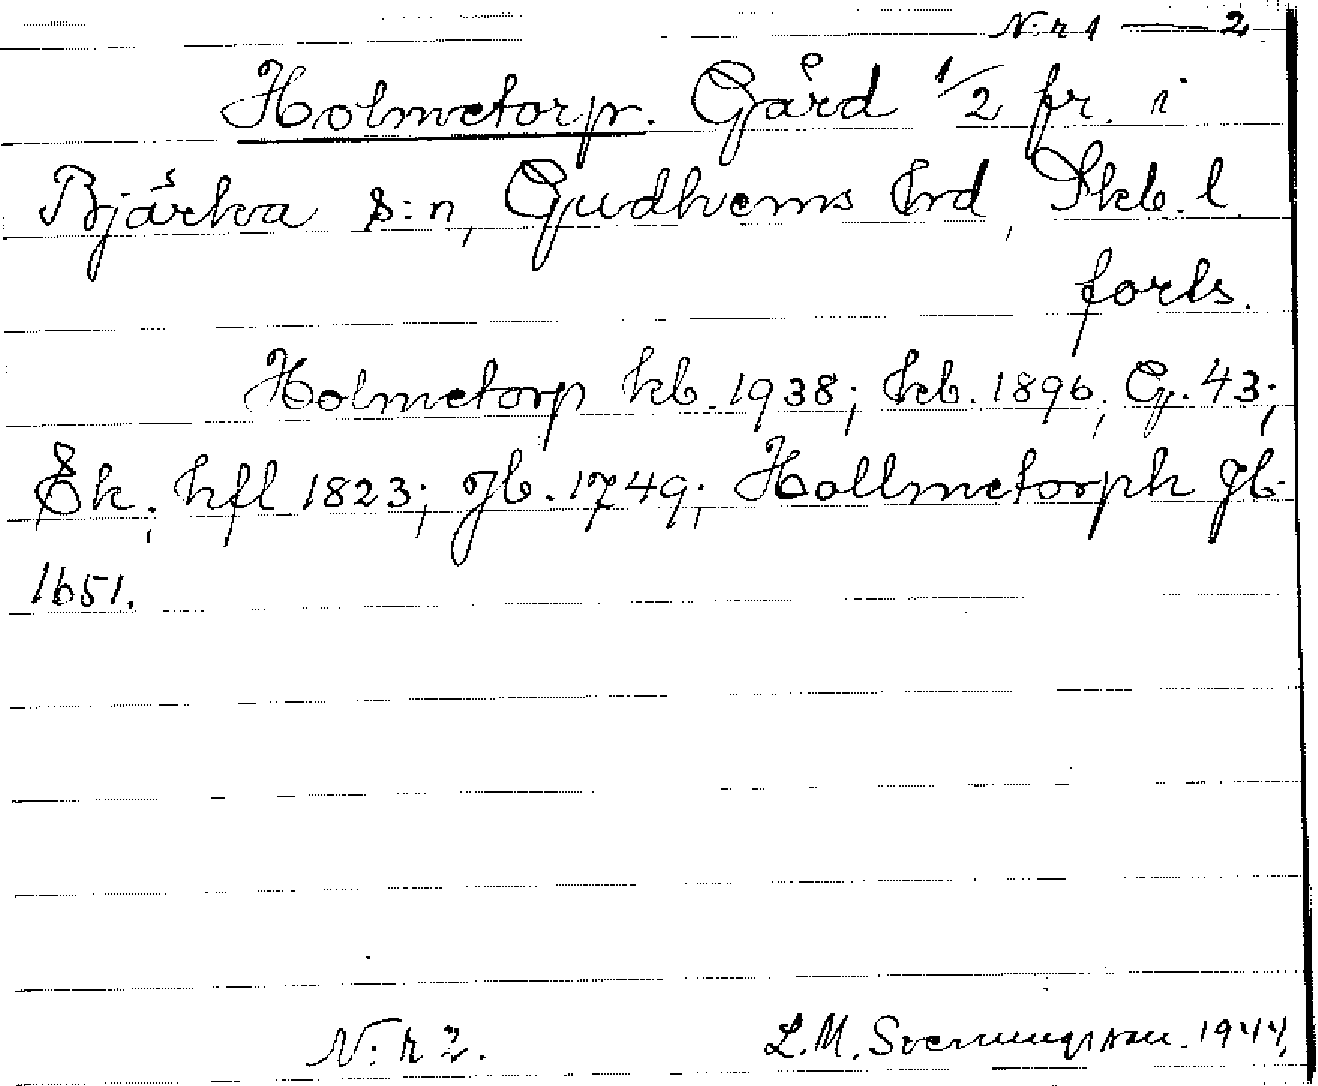 N:r 1 — 2
Holmetorp. Gård 1/2 fr. i
Bjärka s:n, Gudhems hrd, Skb. l.
forts.
Holmetorp kb. 1938; kb. 1896; G. 43;
Ek; hfl 1823; jb. 1749; Hollmetorph jb.
1651.
N:r 2. L.M. Svenungsson. 1944.